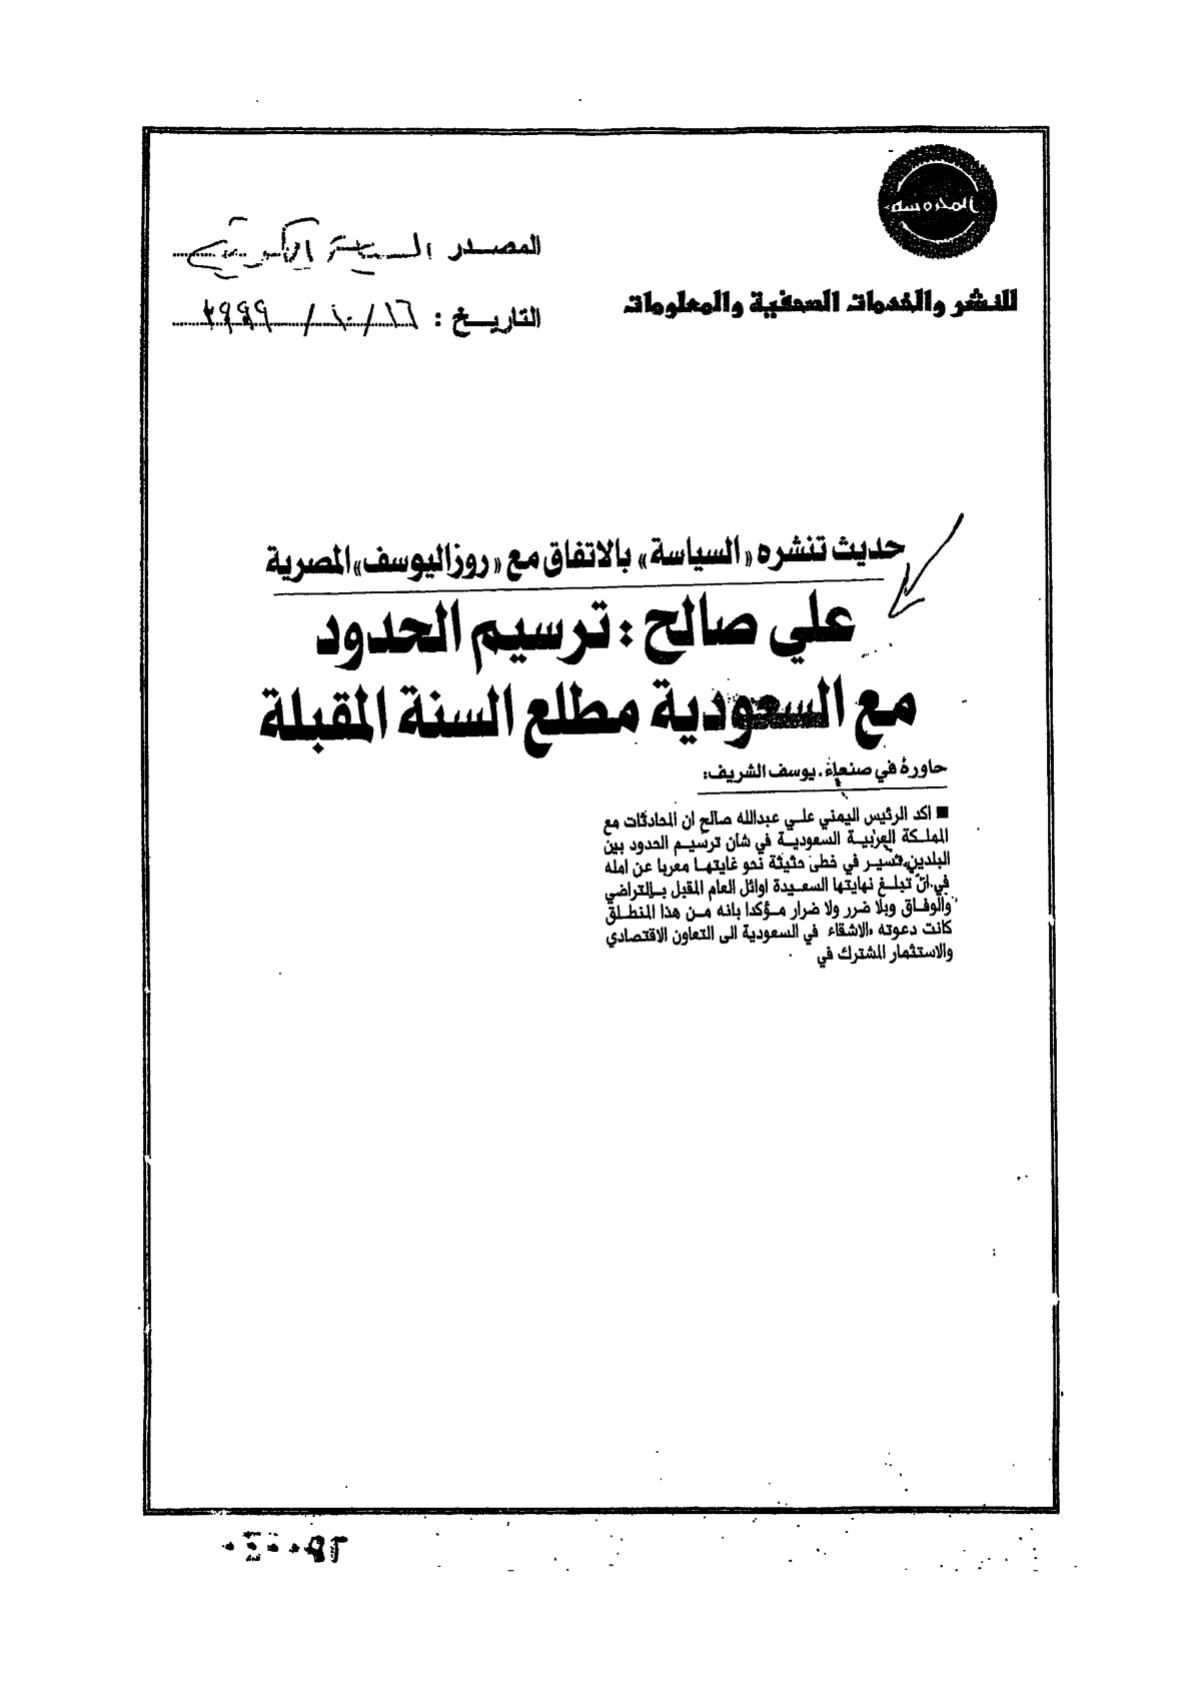 المحروسة
للنشر والخدمات الصحفية والمعلومات
المصدر السياسة الكويتية
التاريخ : ١٦ / ١٠ / ١٩٩٩
حديث تنشره «السياسة» بالاتفاق مع «روز اليوسف» المصرية
علي صالح : ترسيم الحدود
مع السعودية مطلع السنة المقبلة
حاوره في صنعاء . يوسف الشريف:
■ اكد الرئيس اليمني علي عبدالله صالح ان المحادثات مع
المملكة العربية السعودية في شأن ترسيم الحدود بين
البلدين تسير في خطى حثيثة نحو غايتها معربا عن امله
في ان تبلغ نهايتها السعيدة اوائل العام المقبل بالتراضي
والوفاق وبلا ضرر ولا ضرار مؤكدا بانه من هذا المنطلق
كانت دعوته الاشقاء في السعودية الى التعاون الاقتصادي
والاستثمار المشترك في